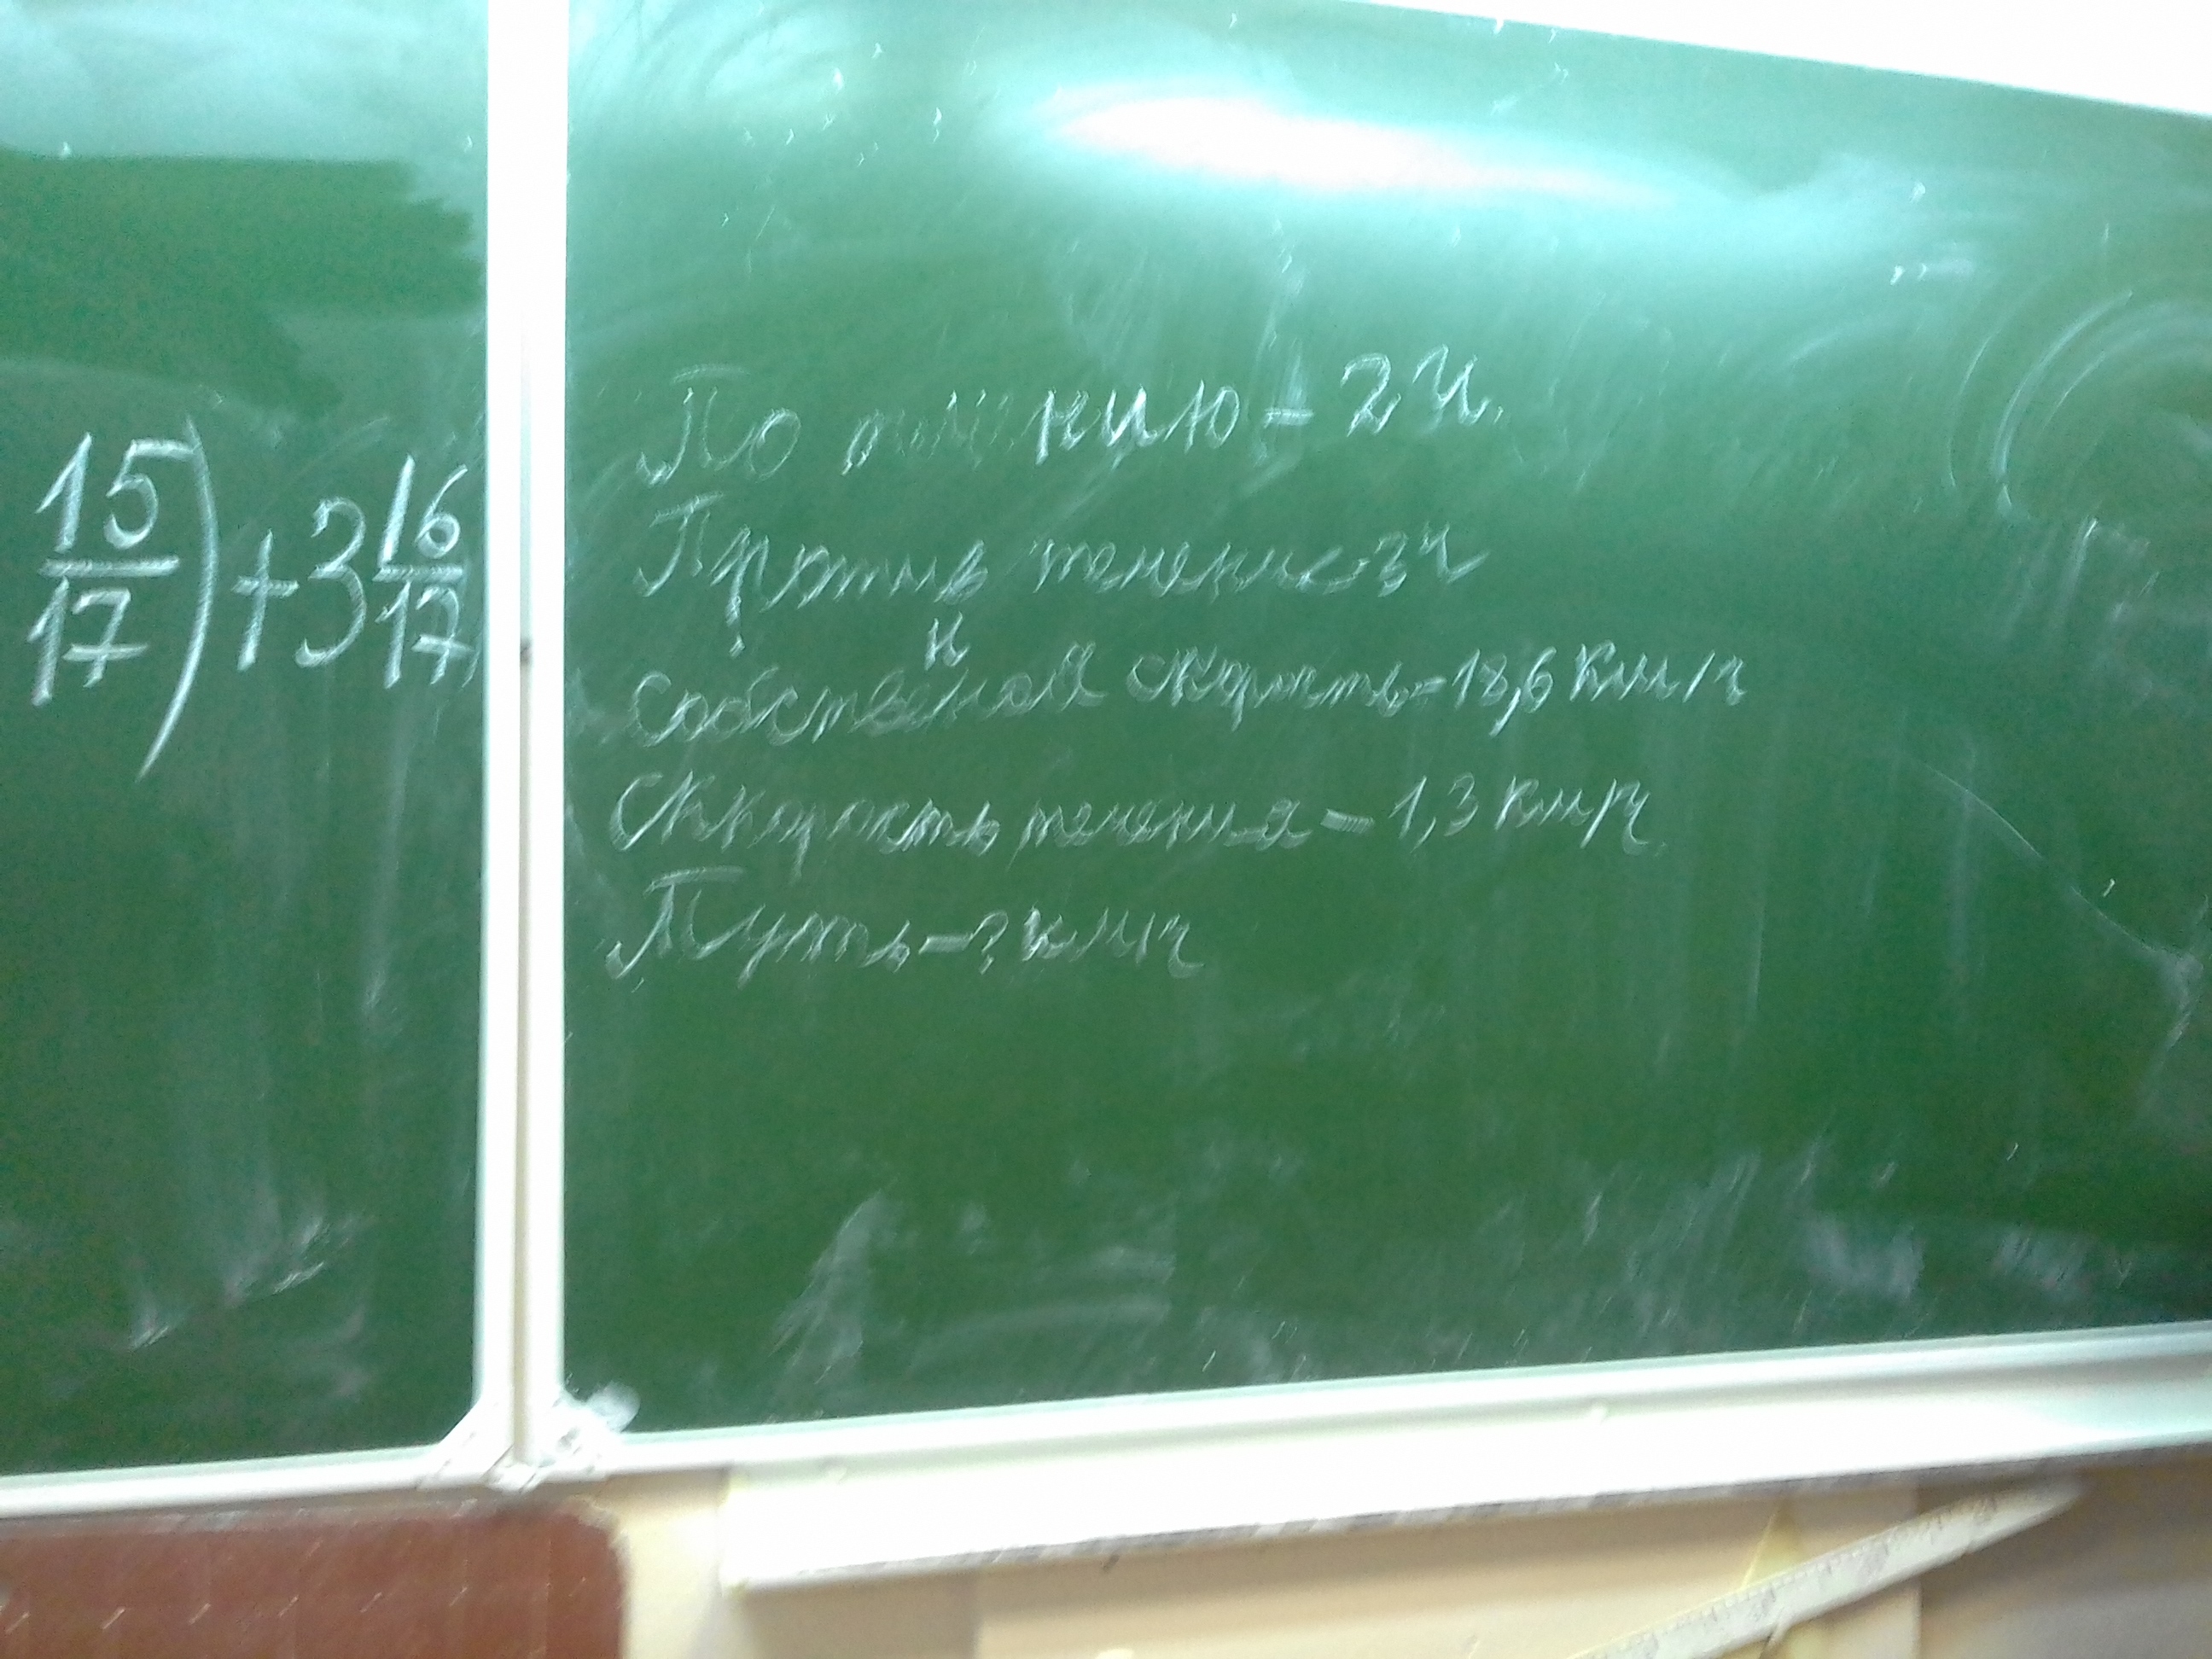 15/17) + 3 16/17
По течению - 2 ч.
Против течение - 3 ч
Собственная скорость - 18,6 км/ч
Скорость течения - 1,3 км/ч
Путь - ? км/ч